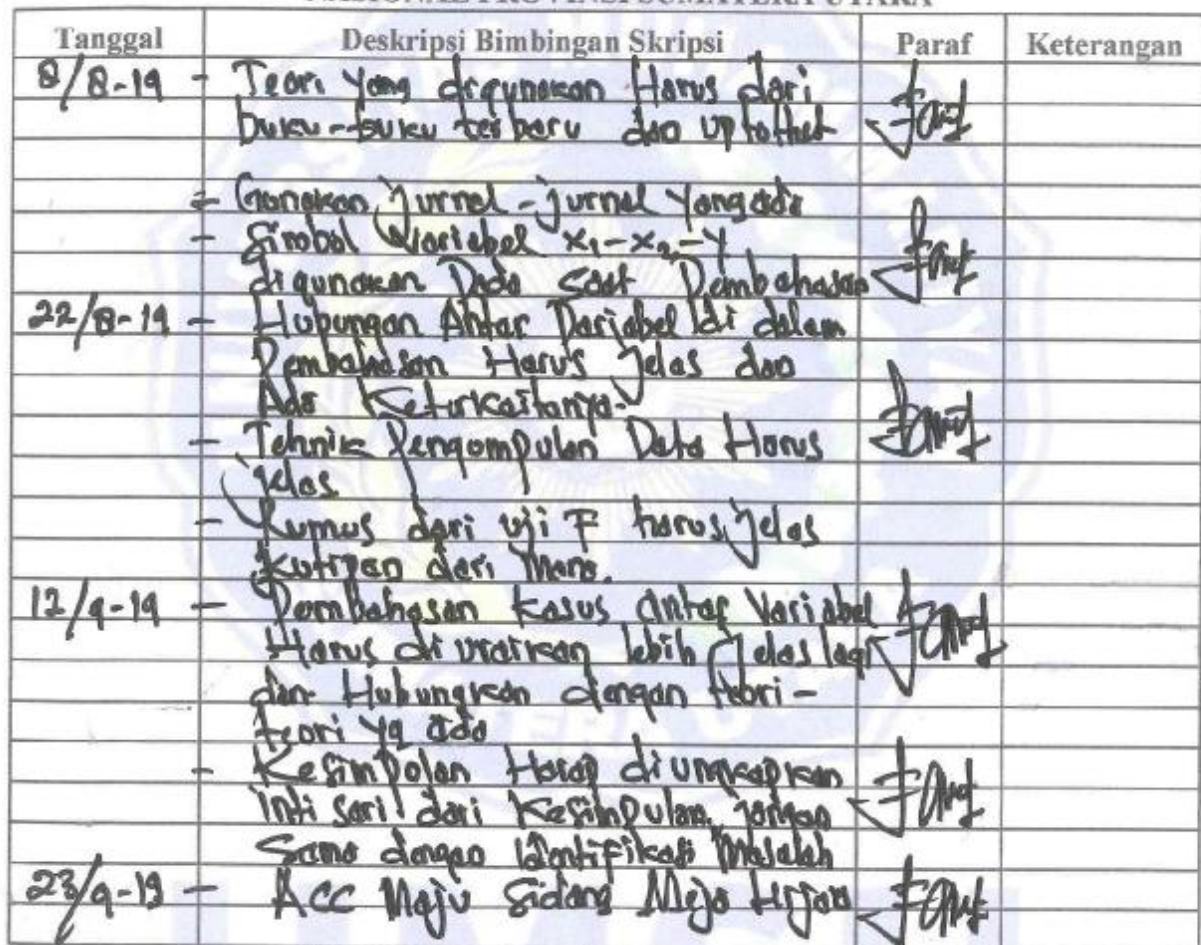 NASIONAL PROVINSI SUMATERA UTARA
Tanggal Deskripsi Bimbingan Skripsi Paraf Keterangan
8/8-19 - Teori yang digunakan Harus dari
buku-buku terbaru dan
- Gunakan jurnal-jurnal yang ada
- Simbol Variabel X1-X2-Y
digunakan Pada saat Pembahasan
22/8-19 - Hubungan Antar Variabel di dalam
Pembahasan Harus jelas dan
Ada Keterkaitanya.
- Tehnik Pengumpulan Data Harus
jelas
- Rumus dari uji F harus jelas
Kutipan dari mana.
12/9-19 - Pembahasan kasus antar Variabel
Harus di uraikan lebih jelas lagi
dan Hubungkan dengan teori-
teori yg ada
- Kesimpulan Harap di ungkapkan
inti sari dari Kesimpulan jangan
Sama dengan identifikasi masalah
23/9-19 - ACC Maju Sidang Meja Hijau